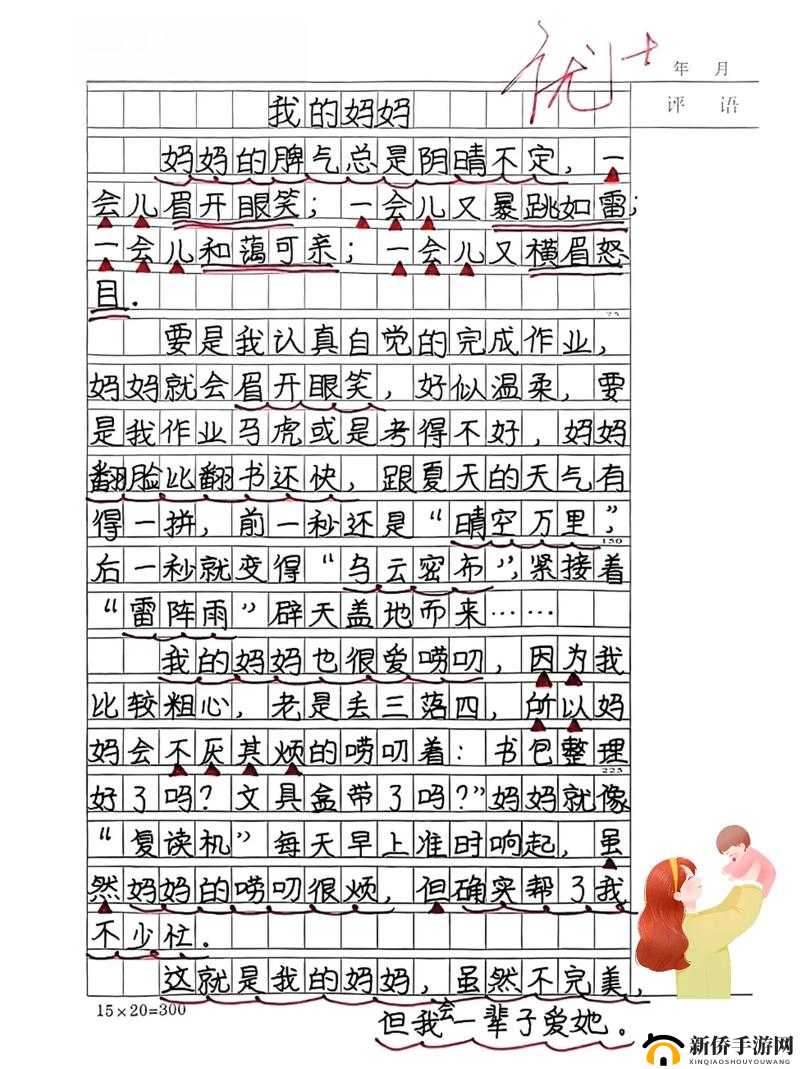 优+
年 月
评 语
我的妈妈
妈妈的脾气总是阴晴不定，一
会儿眉开眼笑；一会儿又暴跳如雷；
一会儿和蔼可亲；一会儿又横眉怒
目.
75
要是我认真自觉的完成作业，
妈妈就会眉开眼笑，好似温柔，要
是我作业马虎或是考得不好，妈妈
翻脸比翻书还快，跟夏天的天气有
得一拼，前一秒还是“晴空万里”，
150
后一秒就变得“乌云密布”，紧接着
“雷阵雨”辟天盖地而来……
我的妈妈也很爱唠叨，因为我
比较粗心，老是丢三落四，所以妈
妈会不厌其烦的唠叨着：书包整理
225
好了吗？文具盒带了吗？”妈妈就像
“复读机”每天早上准时响起，虽
然妈妈的唠叨很烦，但确实帮了我
不少忙.
这就是我的妈妈，虽然不完美，
15×20=300
但我会一辈子爱她。
新侨手游网
XINQIAOSHOUYOUWANG